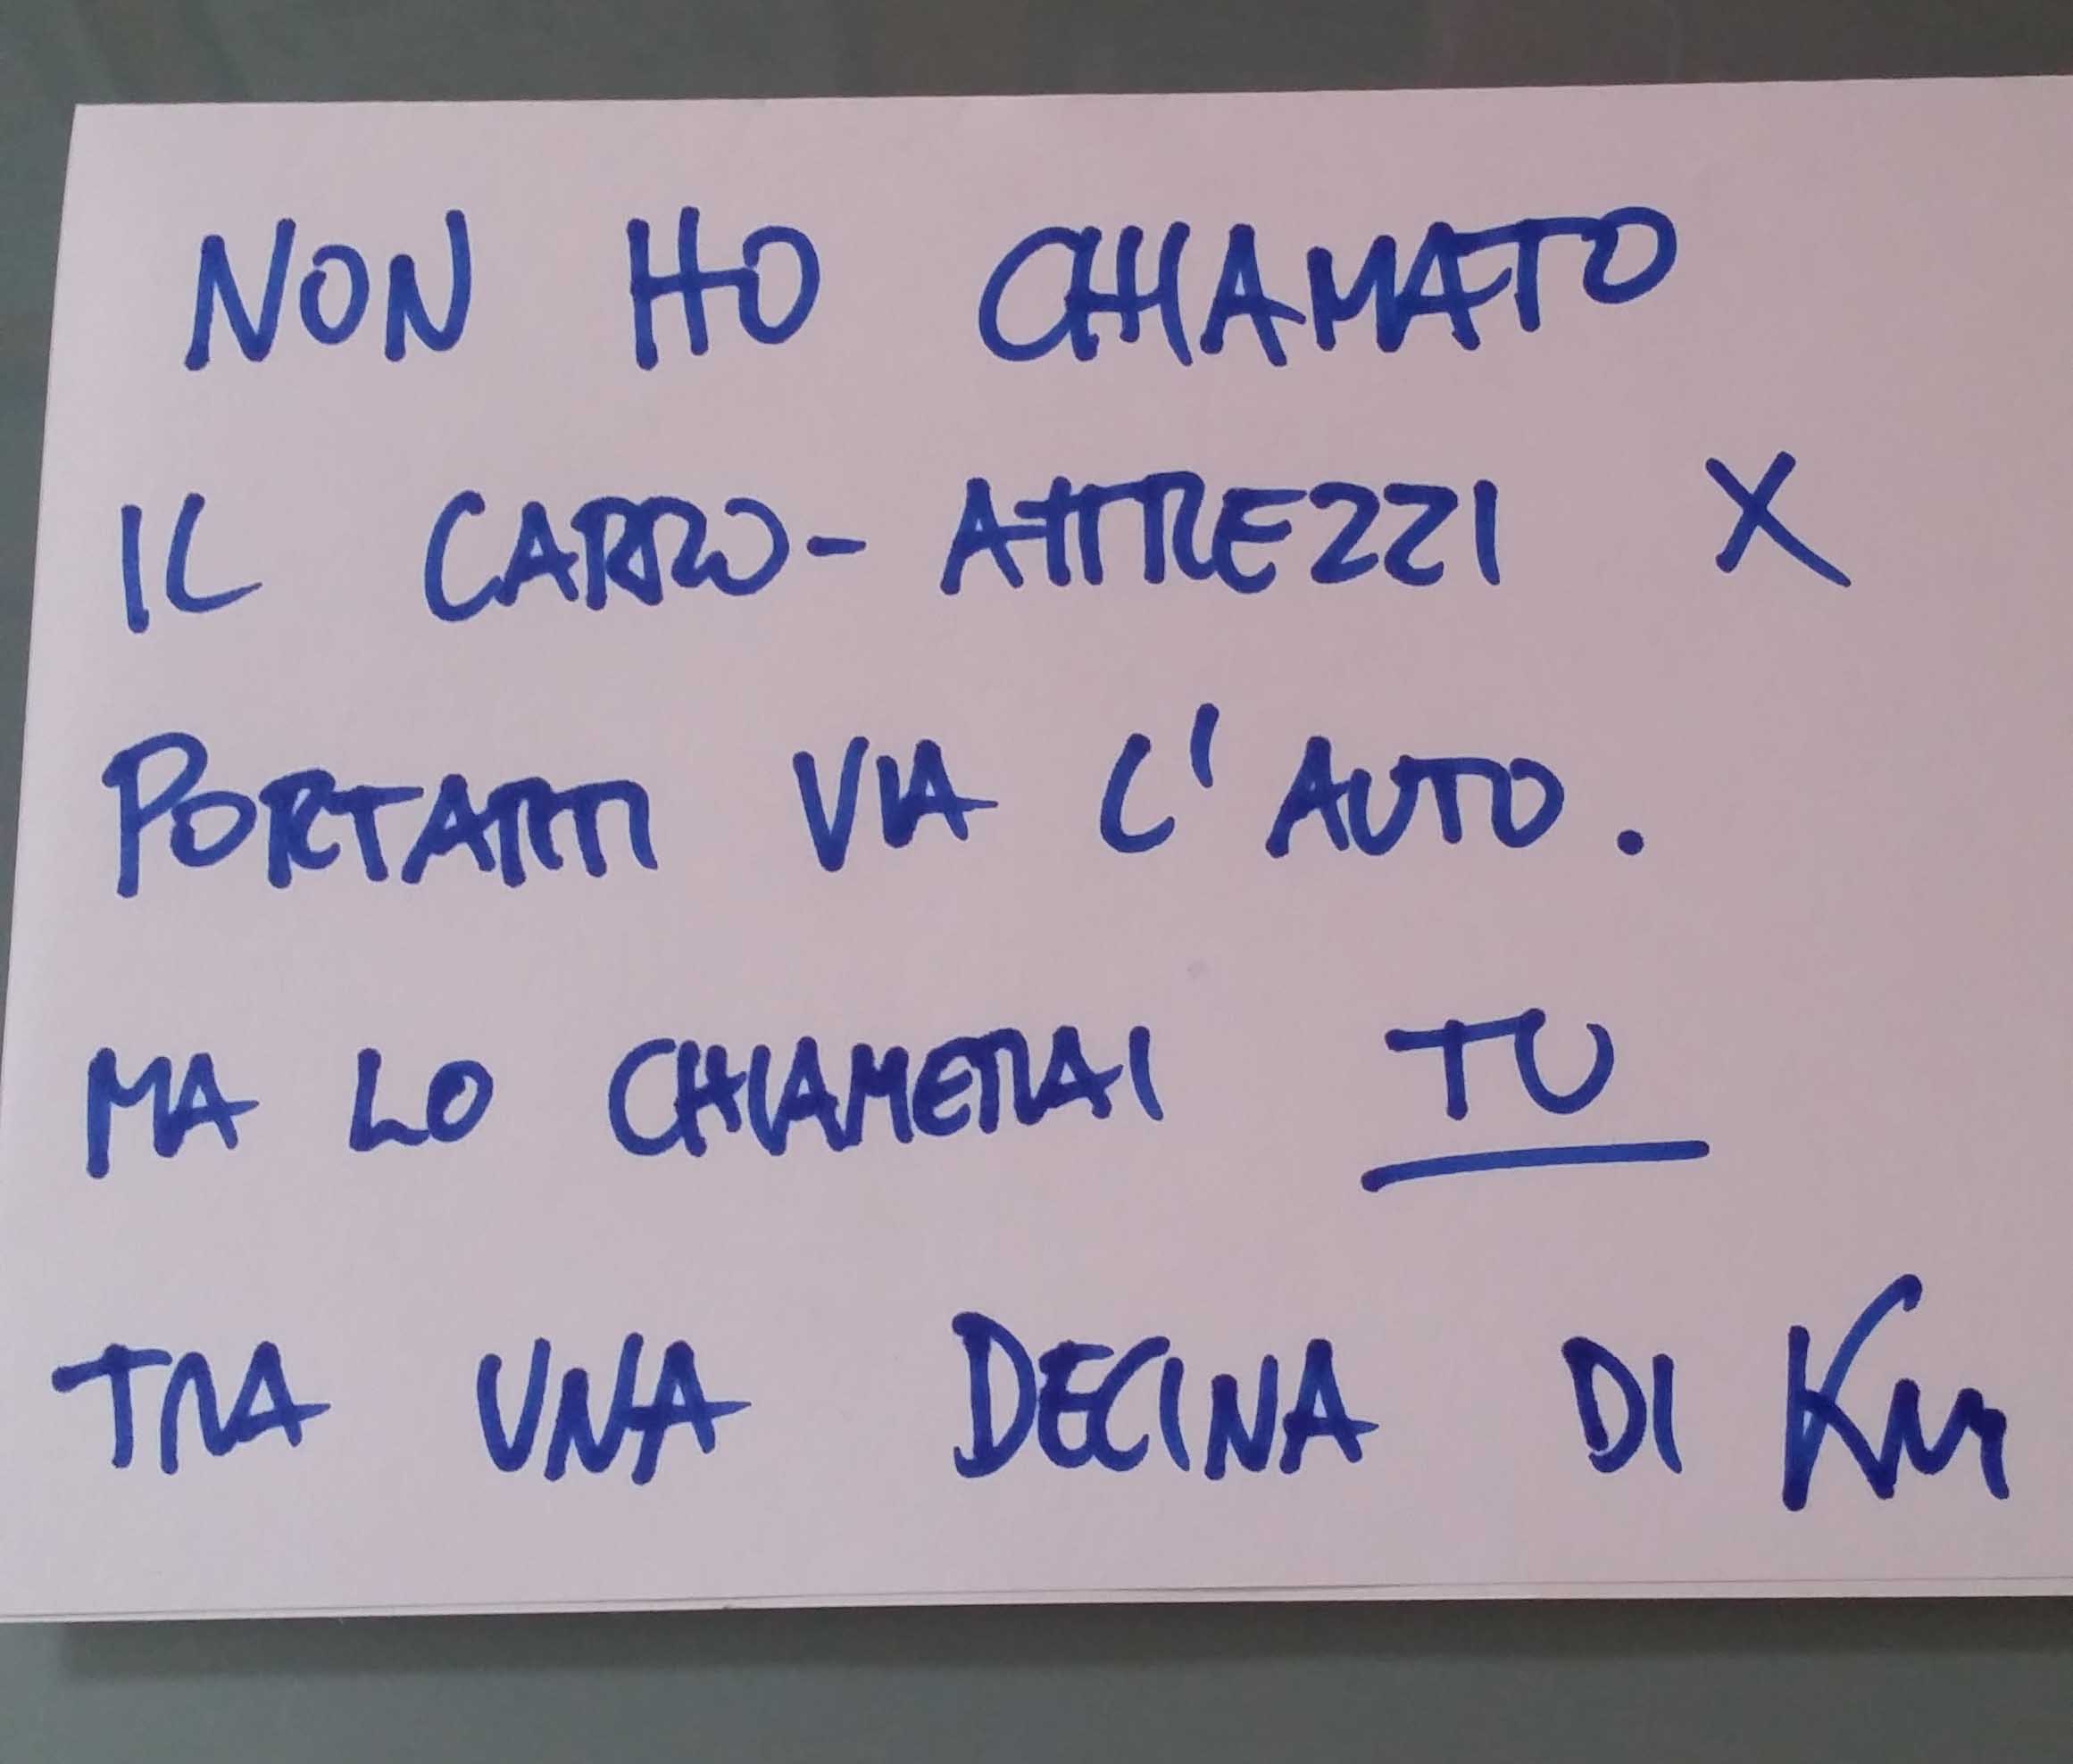 NON HO CHIAMATO
IL CARRO-ATTREZZI X
PORTARTI VIA L'AUTO.
MA LO CHIAMERAI TU
TRA UNA DECINA DI Km